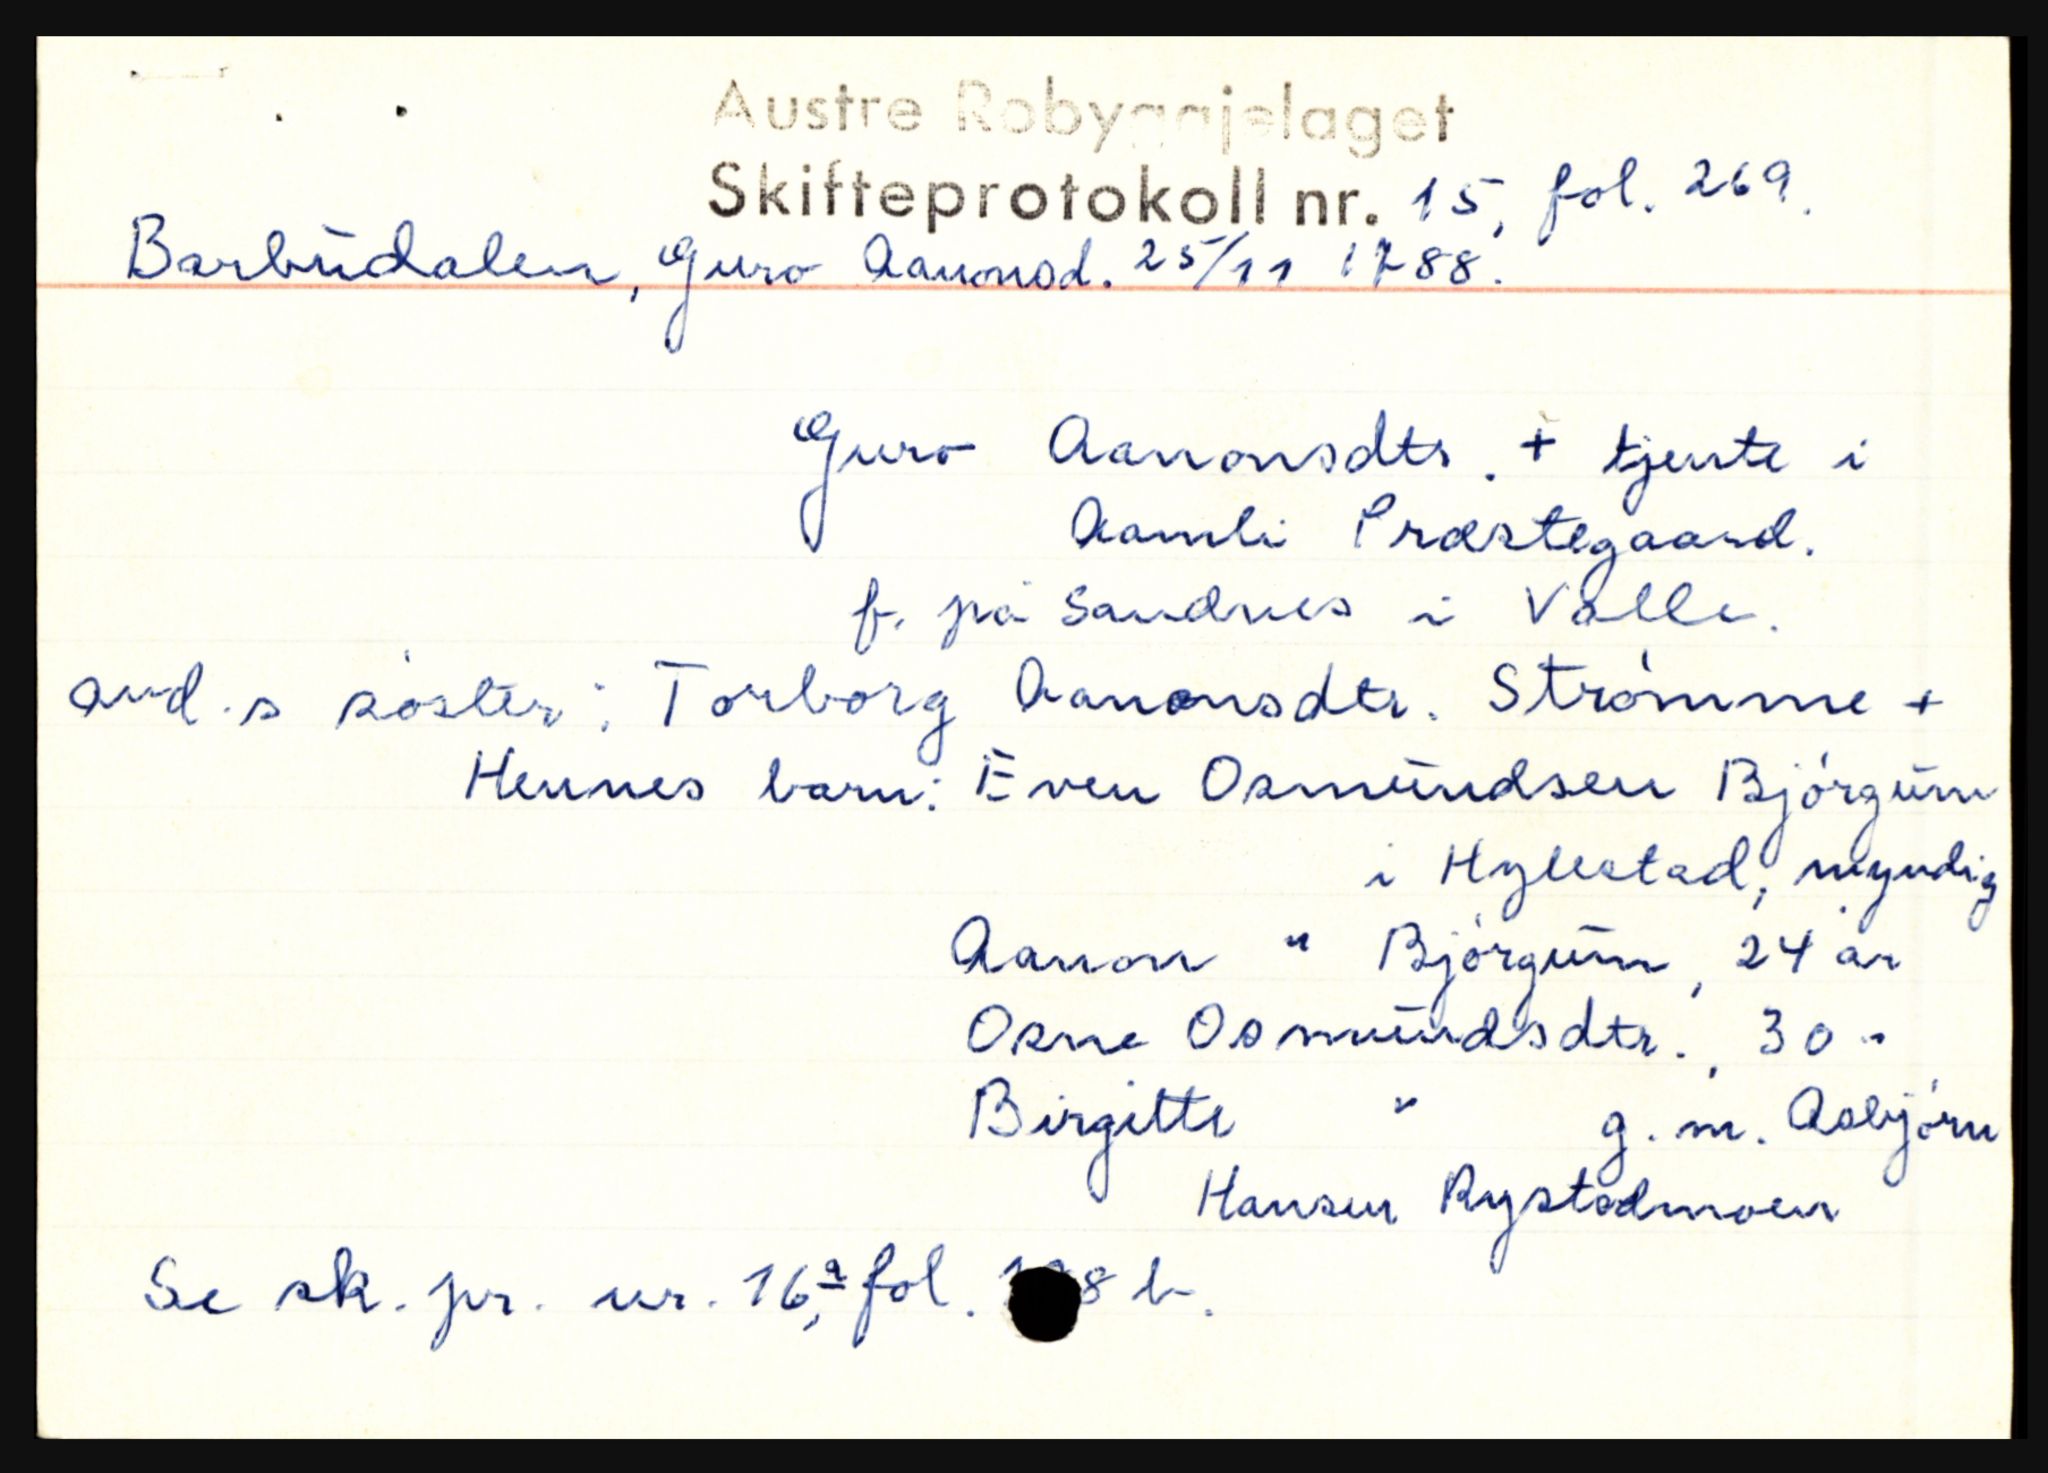 Austre Robyggjelaget
Skifteprotokoll nr. 15, fol. 269.
Barbudalen, Guro Aanonsd. 25/11 1788.
Guro Aanonsdtr. + tjente i
Aamli Præstegaard.
f. på Sandnes i Valle.
avd.s søster: Torborg Aanonsdtr. Strømme +
Hennes barn: Even Osmundsen Bjørgum
i Hylestad, myndig
Aanon " Bjørgum, 24 år
Osne Osmundsdtr., 30 "
Birgitte " g.m. Asbjørn
Hansen Rystadmoen
Se sk. pr. nr. 16a, fol. 8 b.